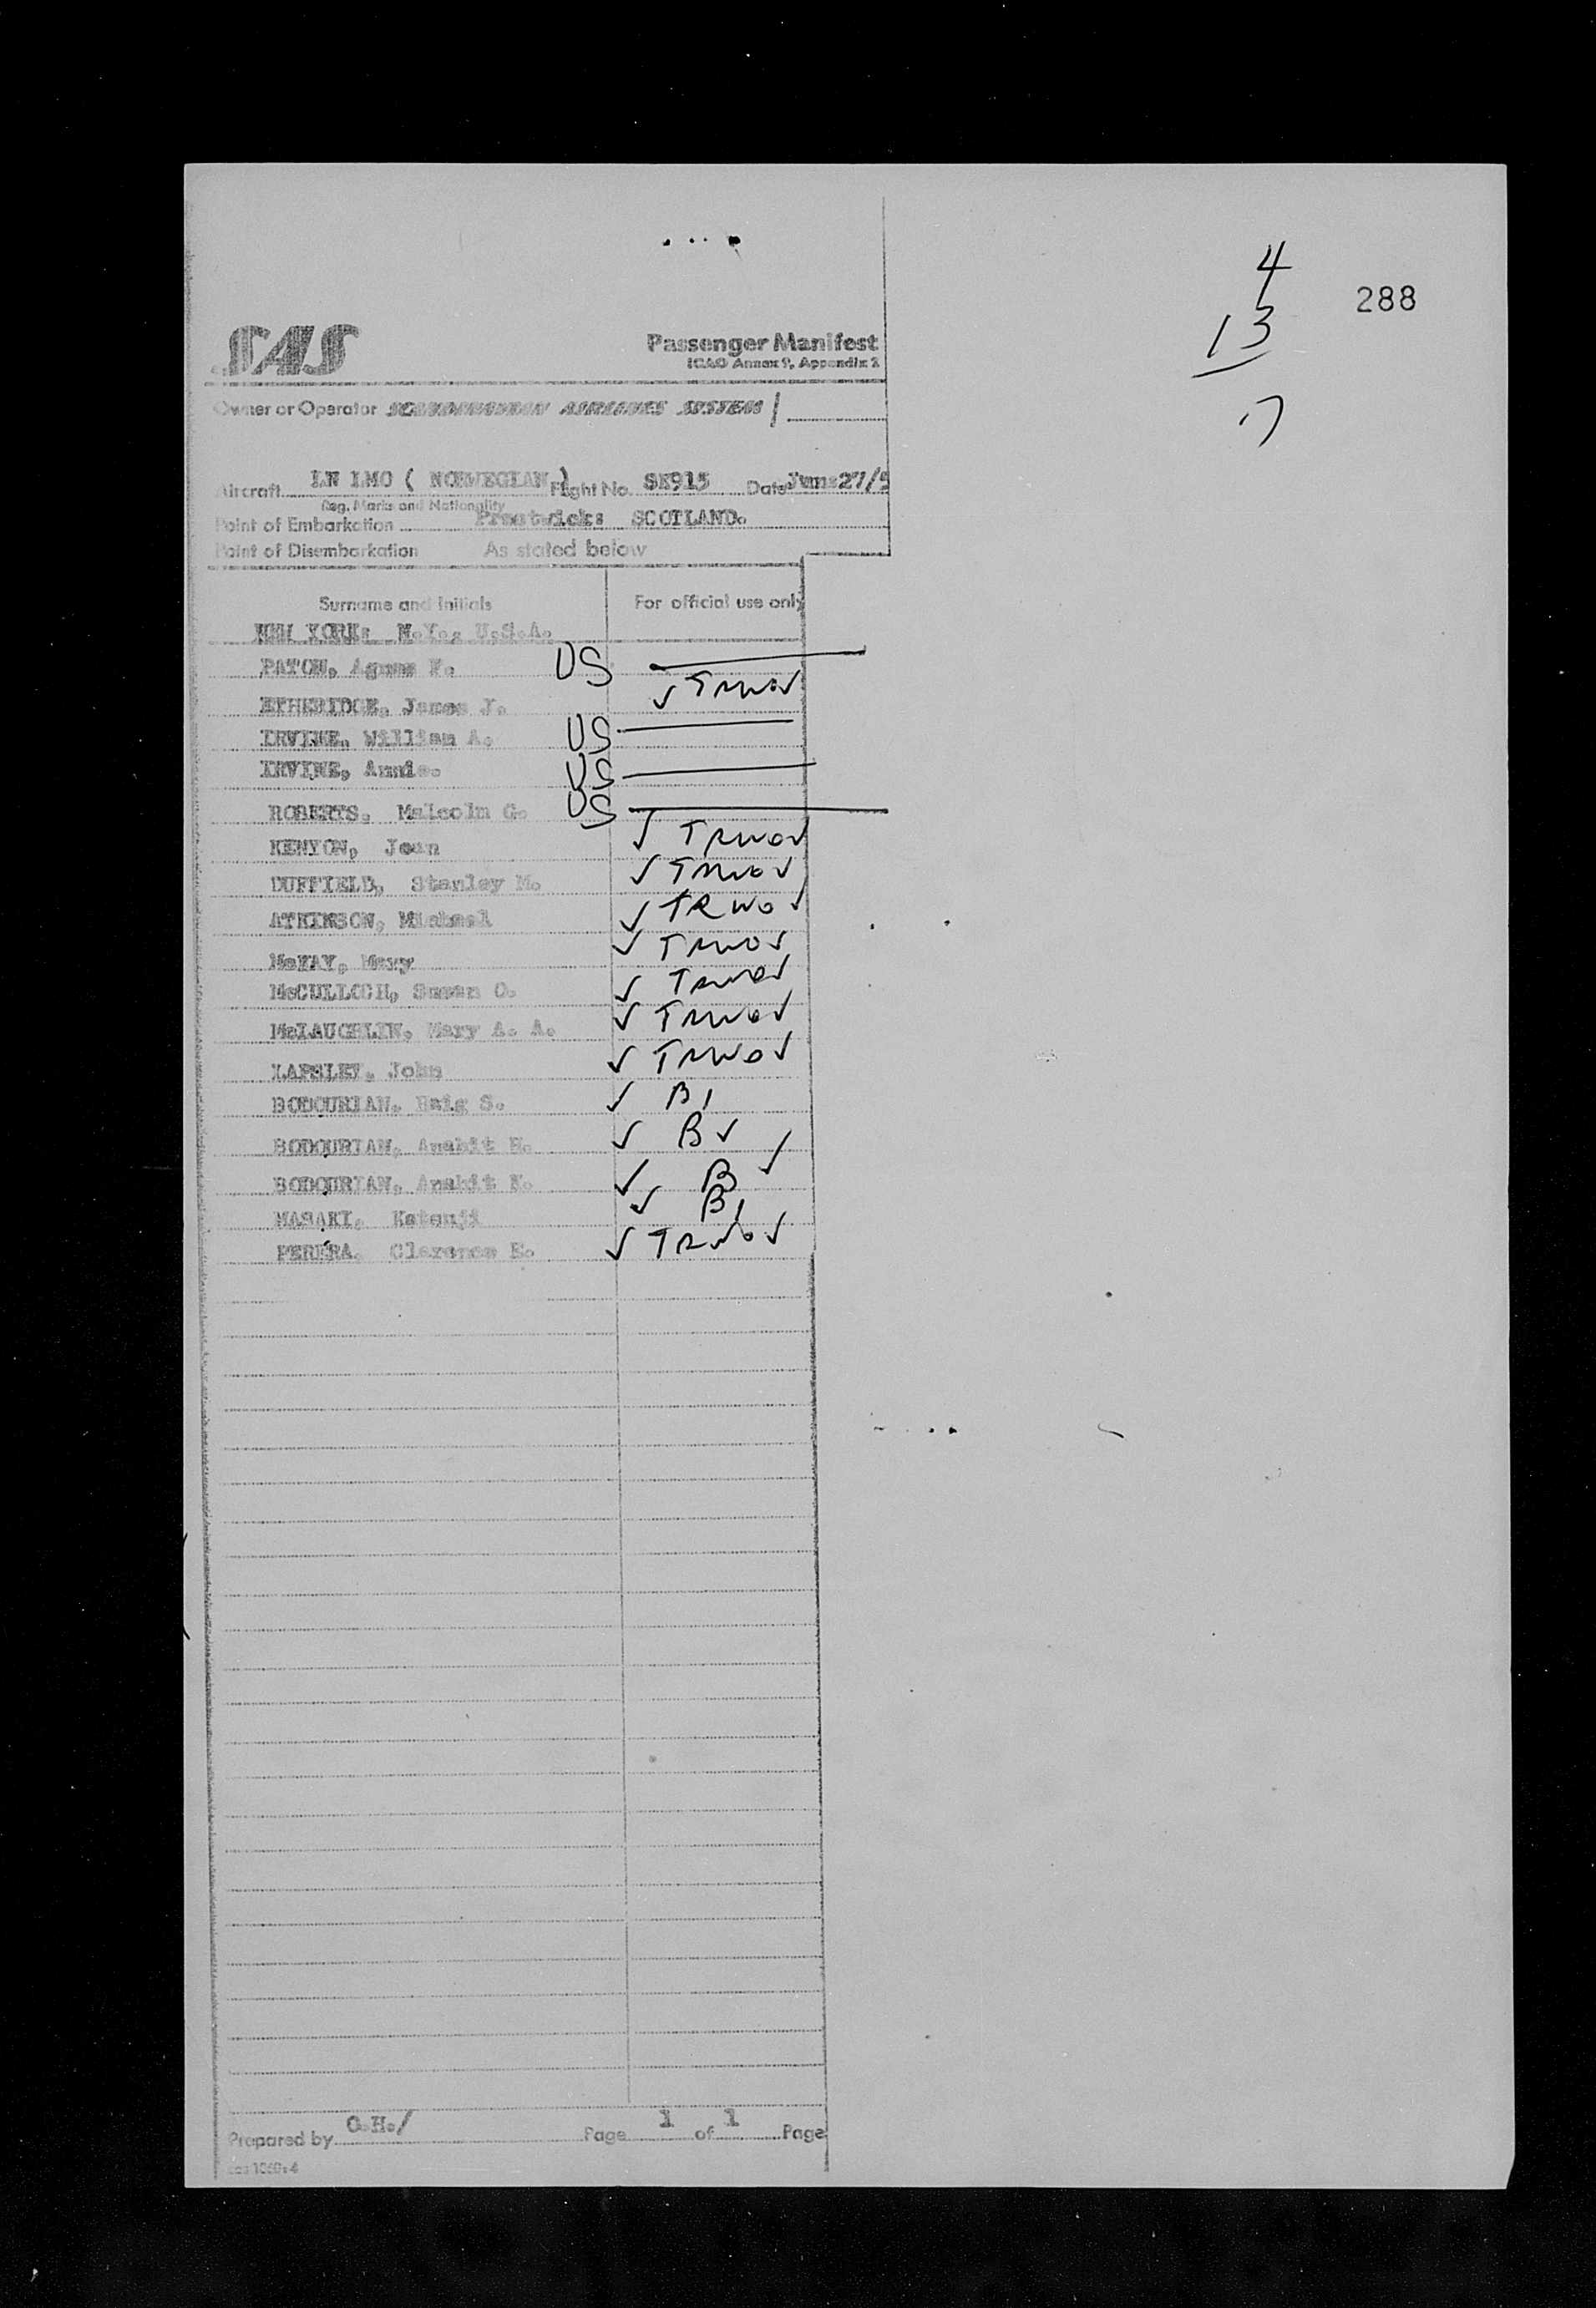 4
288
13
17
SAS
Passenger Manifest
ICAO Annex 9, Appendix 2
Owner or Operator SCANDINAVIAN AIRLINES SYSTEM
Aircraft LN LMO ( NORWEGIAN ) Flight No. SK915 Date June 27/5
Reg. Marks and Nationality
Point of Embarkation Prestwick: SCOTLAND.
Point of Disembarkation As stated below
Surname and Initials For official use only
NEW YORK: N.Y., U.S.A.
PATON, Agnes F. US
ETHERIDGE, James J. ✓ TRWO✓
IRVINE, William A. US
IRVINE, Annie. US
ROBERTS, Malcolm G. US
KENYON, Jean ✓ TRWO✓
DUFFIELD, Stanley M. ✓ TRWO✓
ATKINSON, Michael ✓ TRWO✓
McKAY, Mary ✓ TRWO✓
McCULLOCH, Susan O. ✓ TRWO✓
McLAUGHLIN, Mary A. A. ✓ TRWO✓
LAPSLEY, John ✓ TRWO✓
BODOURIAN, Haig S. ✓ B1
BODOURIAN, Anahit H. ✓ B✓
BODOURIAN, Anahit K. ✓ B✓
MASAKI, Katsuji ✓ B1
PERERA, Clarence E. ✓ TRWO✓
Prepared by G.H./ Page 1 of 1 Page